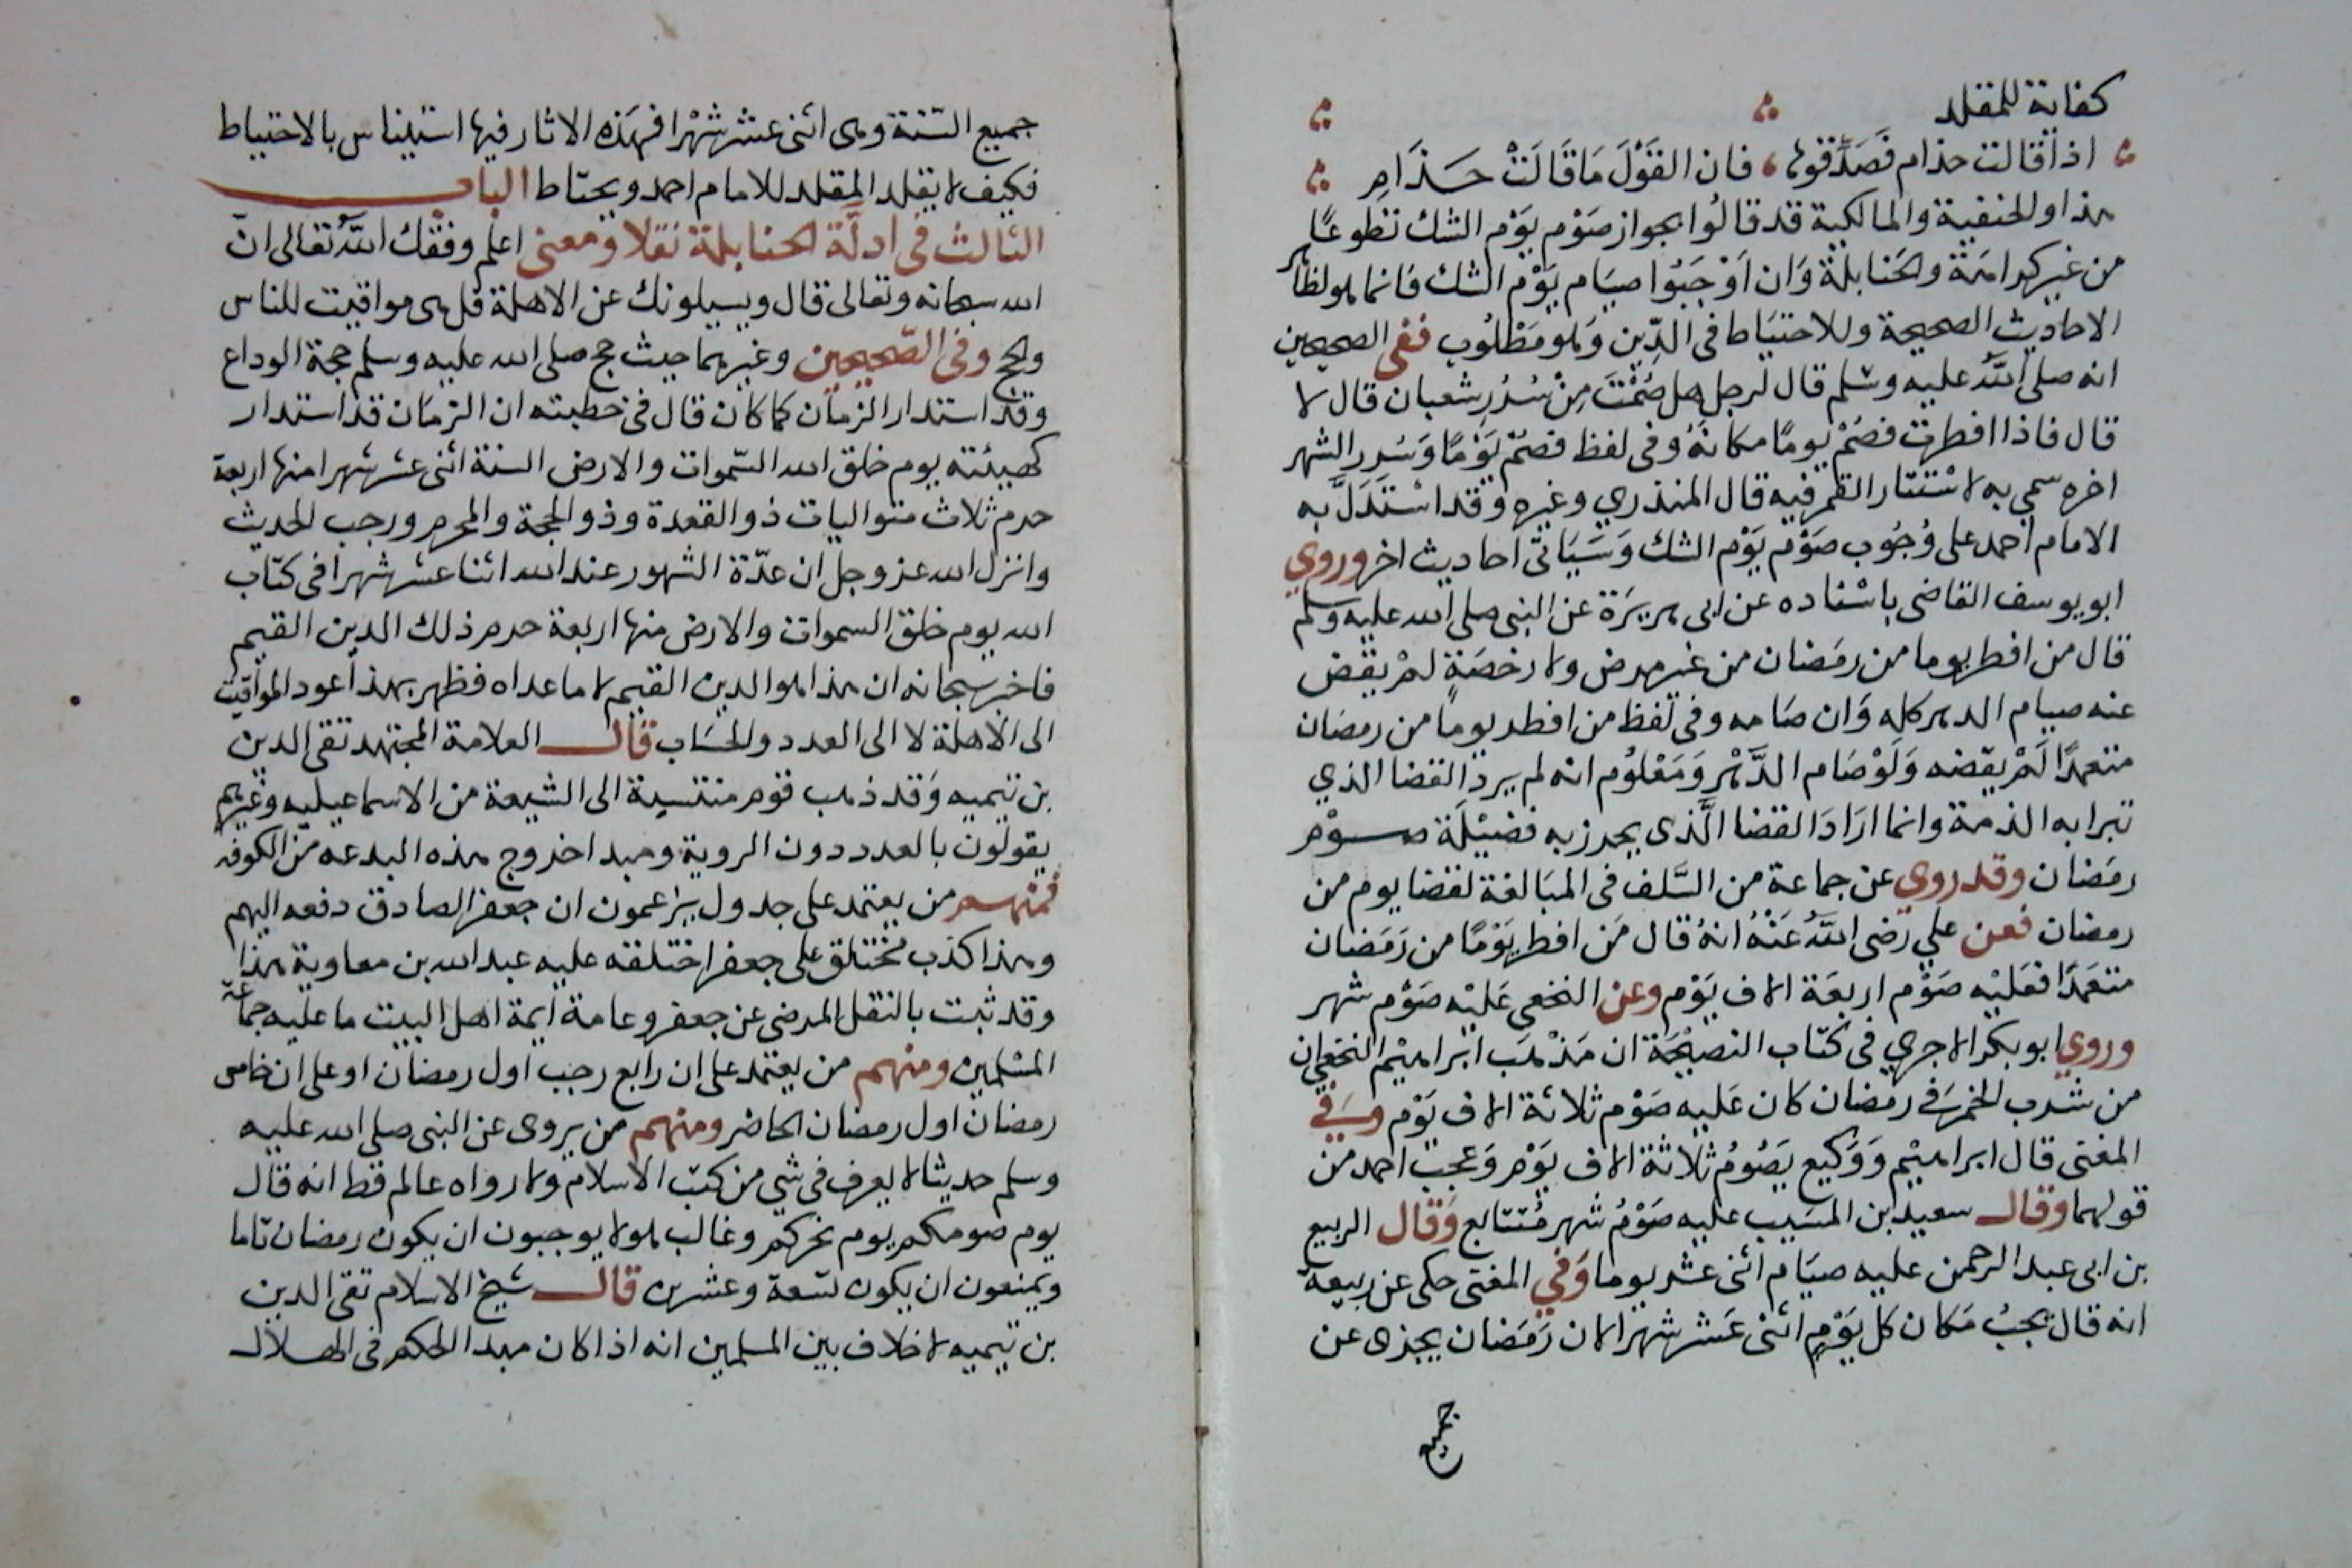 كفاية للمقلد
اذا قالت حذام فَصَدِّقوها ، فان القَوْلَ مَا قَالَتْ حَذَامِ
هذا والحنفية والمالكية قد قالُوا بجواز صَوْم يَوْم الشك تطوعًا
من غير كراهَة والحَنابلة وَان اَوْجَبُوا صيَام يَوْم الشك فانما هو لظاهر
الاحاديث الصحيحة وللاحتيَاط فى الدِّين وَهو مَطْلُوب ففى الصحيحين
انه صلى اللهُ عليه وسلم قال لرجل هل صُمْتَ مِنْ سُرَرِ شعبان قال لا
قال فاذا افطرت فصُمْ يومًا مكانَهُ وفى لفظ فصُمْ يَوْمًا وَسَرر الشهر
اخره سمي به لاسْتتار القمر فيه قال المنذري وغيره وَقد اسْتَدَلَّ به
الامام احمد على وُجُوب صَوْم يَوْم الشك وَسَيَاتى احاديث اخر وروي
ابو يوسف القاضى باسْناده عن ابى هريرَة عن النبى صلى الله عليه وسلم
قال من افطر يوما من رمَضان من غير مرض ولا رخصَةٍ لمْ يقض
عنه صيام الدهر كله وَان صَامه وفى لفظ من افطر يومًا من رمضان
متعمدًا لَمْ يقضه وَلَوْ صَام الدَّهْر وَمَعْلوُم انه لم يرد القضا الذي
تبرا به الذمة وانما ارَادَ القضا الَّذى يحرز به فضيْلَة صوْم
رمَضان وقد روي عن جماعة من السَّلف فى المبَالغة لقضا يوم من
رمضان فعن علي رَضى اللهُ عَنْهُ انهُ قال مَن افطر يَوْمًا من رَمَضان
متعَمدًا فعَليْه صَوْم اربعَة الاف يَوْم وعن النخعى عَليْه صَوْم شهر
وروي ابو بكر الاجري فى كتاب النصيْحَة ان مَذْهَب ابراهيْم النخعى ان
من شرب الخمرَ فى رمضان كان عَليه صَوْم ثلاثة الاف يَوْم وَفي
المغنى قال ابراهيْم وَوَكيع يَصُومُ ثلاثة الاف يَوْم وَعجبَ احمد من
قولهما وقال سعيد بن المسَيب عليه صَوْمُ شهر مُتتابع وَقال الربيع
بن ابى عبد الرحمن عليه صيَام اثنى عشر يوما وَفي المغنى حكى عن ربيعة
انه قال يجبُ مَكان كل يَوْمٍ اثنى عَشر شهرا لان رَمَضان يجزى عن
جميع
جميع السّنة وهى اثنى عشر شهْرا فهَذه الاثار فيها استيناس بالاحتياط
فكيف لا يقلد المقلد للامام احمد ويحتاط الباب
الثالث فى ادلَّة الحنابلة نقلا ومعنى اعلم وفقك اللهُ تعالى انّ
الله سبحانه وتعالى قال ويسيلونك عن الاهلة قل هى مواقيت للناس
والحج وفى الصّحيحين وغيرهما حيث حج صلى الله عليه وسلم حجة الوداع
وقد استدار الزمان كما كان قال فى خطبته ان الزمَان قد استدار
كهيئته يوم خلق الله السّموات والارض السنة اثنى عشر شهرا منها اربعة
حرم ثلاث متواليات ذو القعدة وذو الحجة والمحرم ورجب الحديث
وانزل الله عز وجل ان عدّة الشهور عند الله اثنا عشر شهرا فى كتاب
الله يوم خلق السموات والارض منها اربعة حرم ذلك الدين القيم
فاخبر سبحانه ان هذا هو الدين القيم لا ما عداه فظهر بهذا عود المواقيت
الى الاهلة لا الى العدد والحسَاب قال العلامة المجتهد تقى الدين
بن تيميه وَقد ذهب قوم منتسبة الى الشيعة من الاسماعيليه وغيرهم
يقولون بالعدد دون الروية ومبدا خروج هذه البدعه من الكوفه
فمنهم من يعتمد على جدول يزعمون ان جعفر الصادق دفعه اليهم
وهذا كذب مختلق على جعفر اختلقه عليه عبد الله بن معاوية هذا
وقد ثبت بالنقل المرضى عن جعفر وعامة ايمة اهل البيت ما عليه جماعة
المسْلمين ومنهم من يعتمد على ان رابع رجب اول رمضان او على ان خامس
رمضان اول رمضان الحاضر ومنهم من يروى عن النبى صلى الله عليه
وسلم حديثا لا يعرف فى شي من كتب الاسلام ولا رواه عالم قط انه قال
يوم صومكم يوم نحركم وغالب هولا يوجبون ان يكون رمضان تاما
ويمنعون ان يكون تسعة وعشرين قال شيخ الاسلام تقى الدين
بن تيميه لا خلاف بين المسلمين انه اذا كان مبدا الحكم فى الهلال